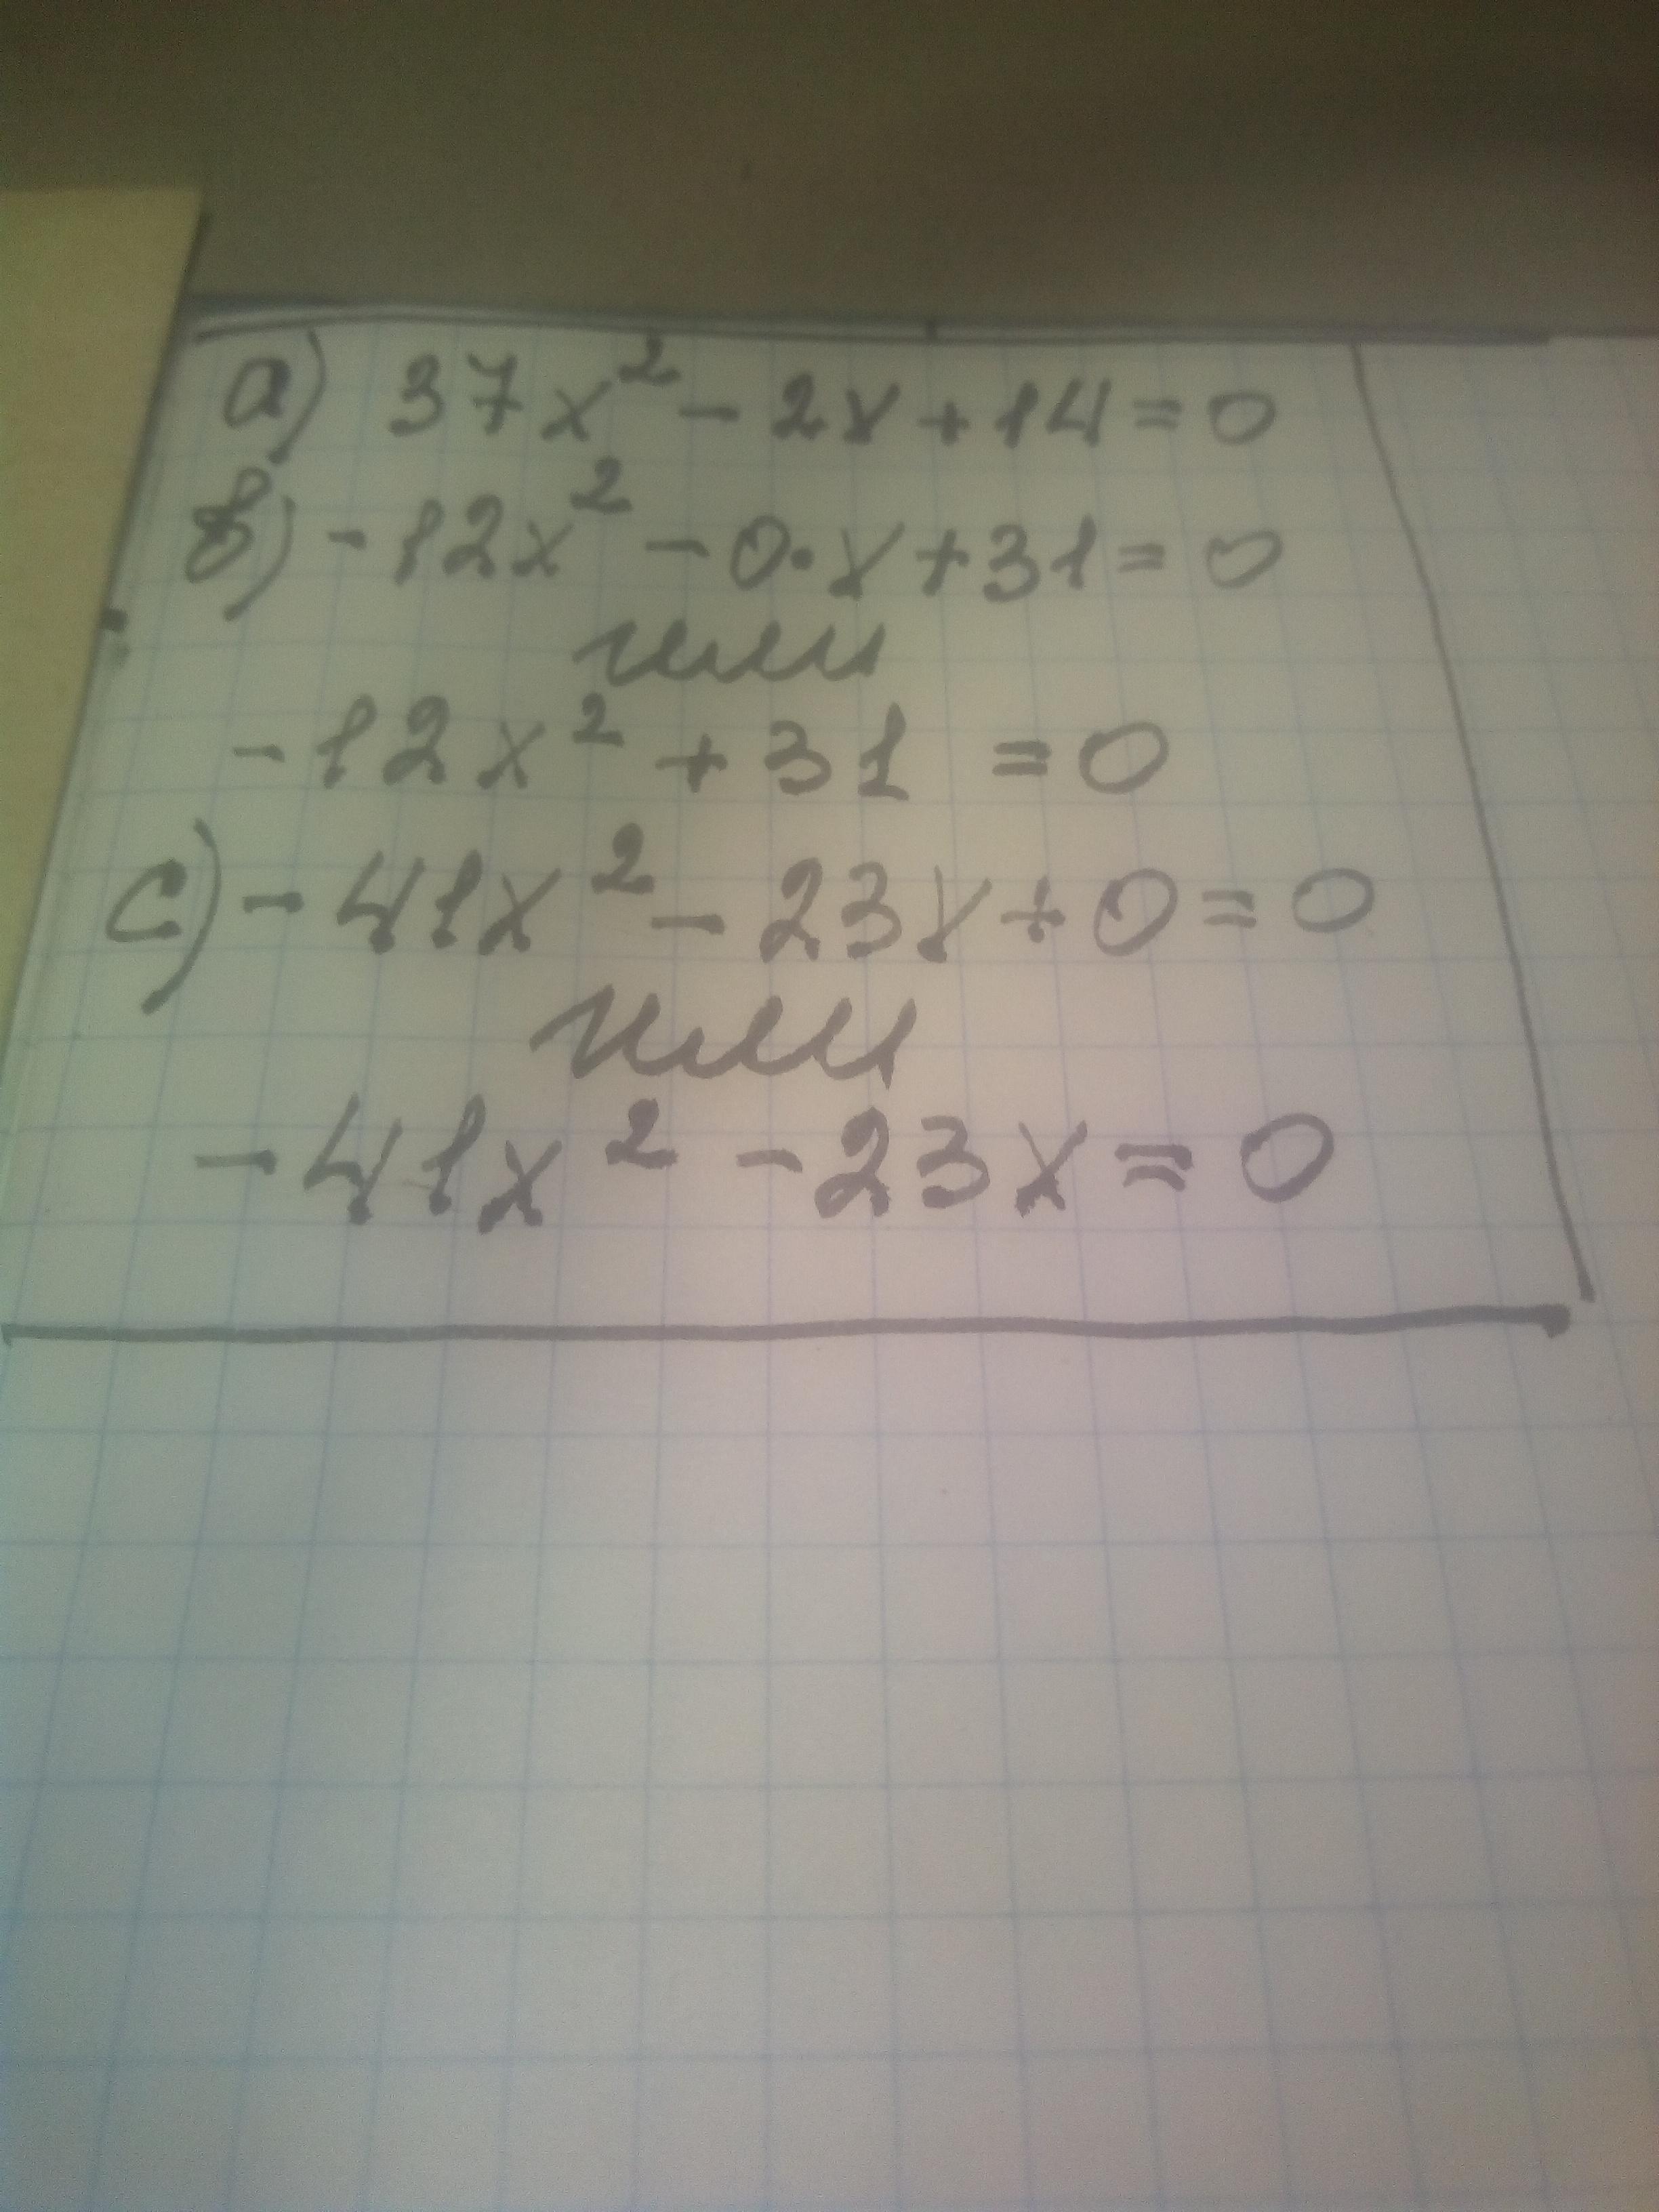 а) 37x² - 2x + 14 = 0
в) -12x² - 0·x + 31 = 0
или
-12x² + 31 = 0
с) -41x² - 23x + 0 = 0
или
-41x² - 23x = 0